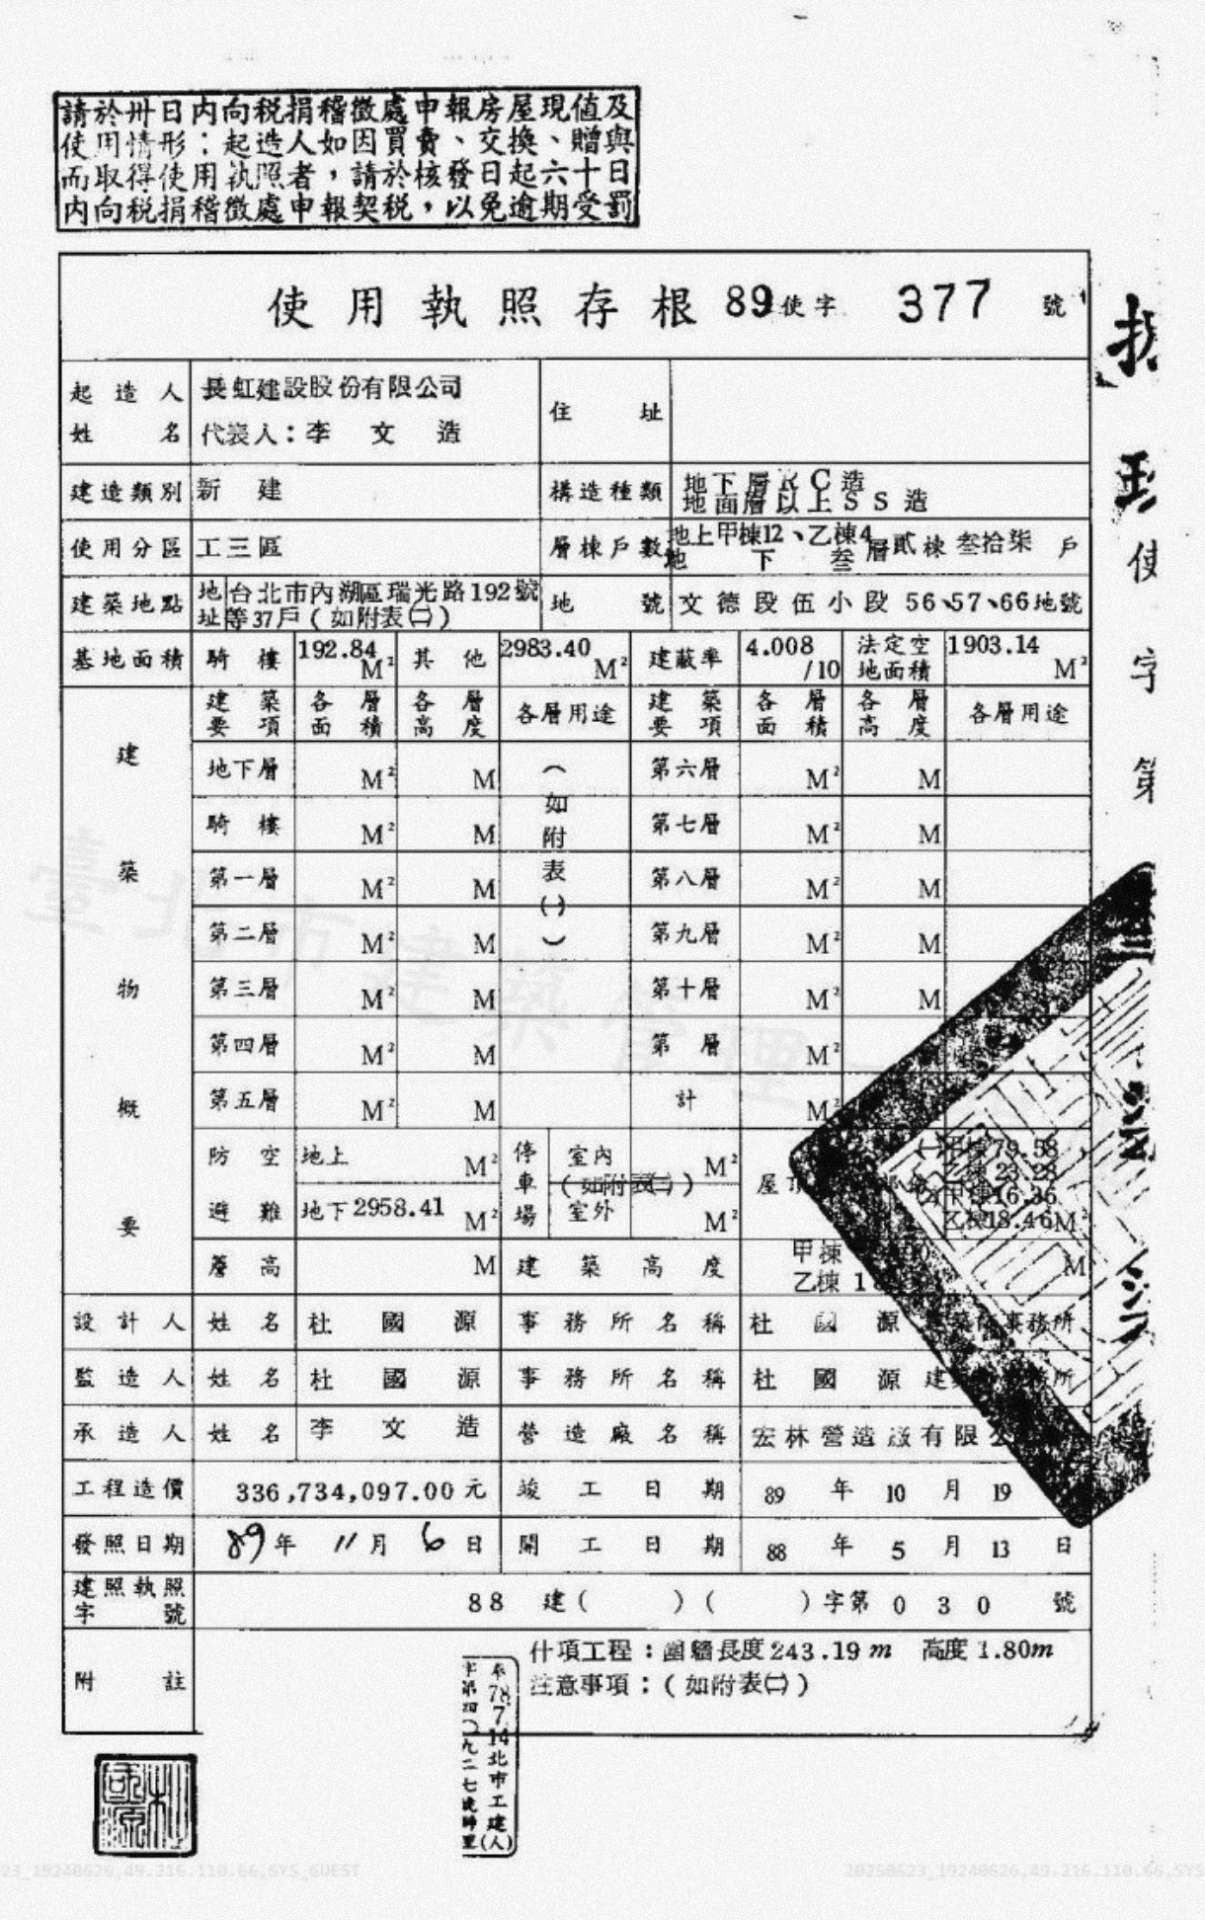 請於卅日內向稅捐稽徵處申報房屋現值及
使用情形；起造人如因買賣、交換、贈與
而取得使用執照者，請於核發日起六十日
內向稅捐稽徵處申報契稅，以免逾期受罰
使用執照存根 89使字 377 號
起造人姓名 長虹建設股份有限公司 代表人：李文造 住址
建造類別 新建 構造種類 地下層RC造 地面層以上SS造
使用分區 工三區 層棟戶數 地上甲棟12、乙棟4 地下叁 層貳棟叁拾柒戶
建築地點 地址 台北市內湖區瑞光路192號等37戶(如附表㈡) 地號 文德段伍小段56、57、66地號
基地面積 騎樓 192.84 M² 其他 2983.40 M² 建蔽率 4.008/10 法定空地面積 1903.14 M²
建築物概要
建築要項 各層面積 各層高度 各層用途 建築要項 各層面積 各層高度 各層用途
地下層 M² M 第六層 M² M
騎樓 M² M 第七層 M² M
第一層 M² M 第八層 M² M
第二層 M² M 第九層 M² M
第三層 M² M 第十層 M² M
第四層 M² M 第 層 M²
第五層 M² M 計 M²
(如附表
防空避難 地上 M² 停車場 室內 M² 甲棟79.58
乙棟23.28
(如附表㈡)
地下2958.41 M² 室外 M² 甲棟16.36
乙棟18.46M²
層高 M 建築高度 甲棟 乙棟 M
設計人 姓名 杜國源 事務所名稱 杜國源建築師事務所
監造人 姓名 杜國源 事務所名稱 杜國源建 務所
承造人 姓名 李文造 營造廠名稱 宏林營造廠有限
工程造價 336,734,097.00元 竣工日期 89年10月19
發照日期 89年11月6日 開工日期 88年5月13日
建照執照字號 88建( )( )字第030號
附註 什項工程：圍牆長度243.19m 高度1.80m
注意事項：(如附表㈡)
奉78.7.14北市工建(人)
字第四〇九二七號
使字第